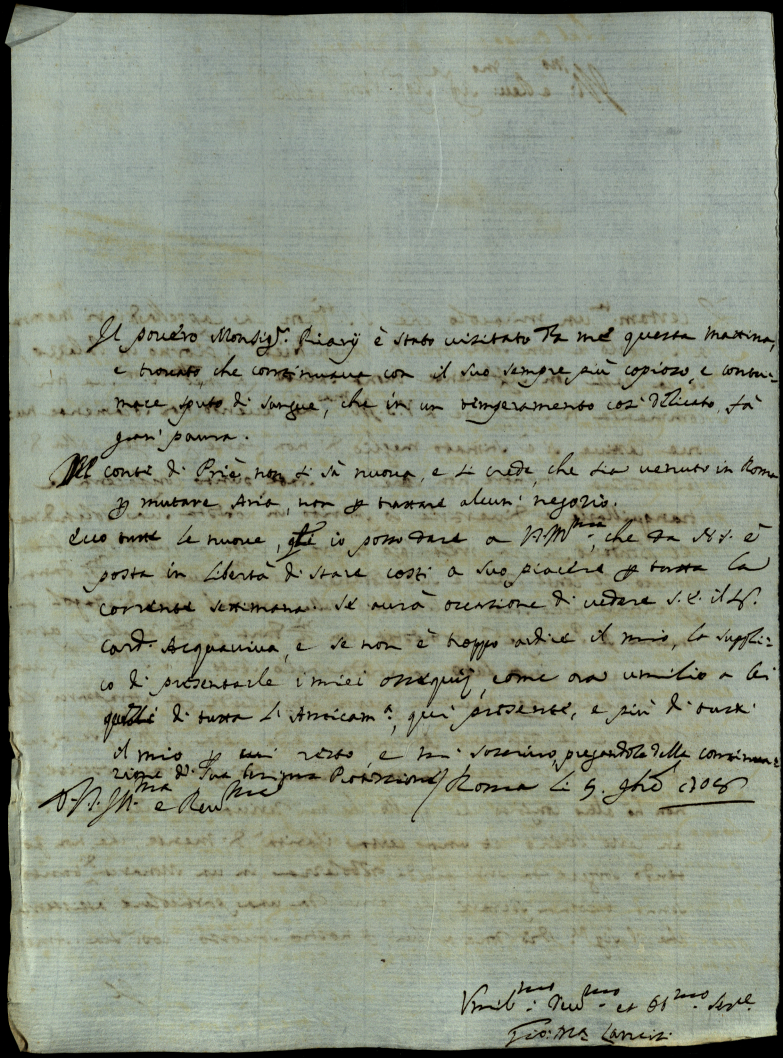 Il povero Monsig.r Riarij è stato visitato da me questa mattina,
e trovato, che continuava con il suo sempre più copioso, e contu-
mace sputo di sangue, che in un temperamento così delicato, fà
gran paura.
Del conte di Priè non si sà nuova, e si crede, che sia venuto in Roma
p mutare Aria, non p trattare alcun negozio.
Ecco tutte le nuove, che io posso dare a V.S. Ill.ma, che da N.S. è
posta in libertà di stare costì a suo piacere p tutta la
corrente settimana. Se avrà occasione di vedere S.E. il Sig.
Card. Acquaviva, e se non è troppo ardire il mio, la suppli-
co di presentarle i miei ossequij, come ora umilio a lei
quelli di tutta l'Anticam.a, qui presente, e più di tutti
il mio p cui resto, e mi soscrivo, pregandola della continua-
zione di Sua Protezione / Roma li 9. 9bre 1708
D. V.S. Ill.ma e Rev.ma
Umil.mo Dev.mo et Obl.mo Serv.e
Gio: Ma. Lancisi